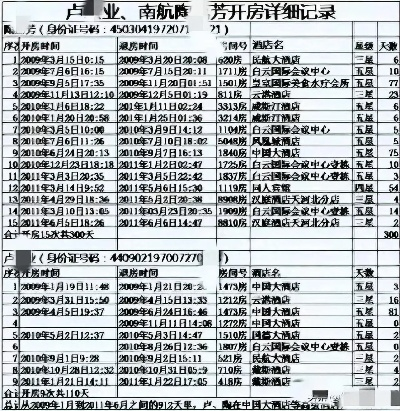 卢 业、南航陶 芳开房详细记录
陶 芳（身份证号码：45030419720 21）
序 开房时间 退房时间 房间号 酒店名 星级 天数
1 2009年3月15日0:15 2009年3月20日20:08 620房 民航大酒店 三星 6
2 2009年7月6日16:15 2009年7月15日20:11 1711房 白云国际会议中心 五星 10
3 2009年9月5日17:35 2009年11月20日01:51 1501房 皇冠国际美食水疗会所 五星 77
4 2009年11月13日12:10 2009年12月5日01:19 811房 云湛酒店 三星 23
5 2010年1月6日18:22 201年1月11日02:24 3313房 威斯汀酒店 五星 6
6 2010年1月20日20:58 201年1月25日01:36 3214房 威斯汀酒店 五星 6
7 2010年3月5日10:00 2010年3月9日14:12 1104房 白云国际会议中心 五星 5
8 2010年7月6日11:26 2010年7月10日18:02 5048房 凤凰城酒店 五星 5
9 2010年6月24日20:13 2010年9月7日16:13 1840房 中国大酒店 五星 75
10 2010年12月23日18:18 2011年1月2日02:47 1725房 白云国际会议中心壹栋 五星 10
11 2011年3月3日20:35 2011年3月5日22:42 1837房 白云国际会议中心壹栋 五星 3
12 2011年3月14日9:52 2011年5月6日15:30 1119房 同人宾馆 四星 54
13 2011年4月29日18:36 2011年5月2日20:38 8908房 汉庭酒店天河北分店 三星 4
14 2011年3月10日13:05 2011年03月23日20:35 1909房 白云国际会议中心壹栋 五星 14
15 2011年6月5日18:26 2011年6月6日14:47 8810房 汉庭酒店天河北分店 三星 2
合计 开房15次共300天 300
卢 业（身份证号码：44090219700727 ）
开房时间 退房时间 房间号 酒店名 天数
1 2009年1月19日11:48 2009年1月21日20:2 1473房 中国大酒店 五星 3
2 2009年3月31日15:50 2009年4月15日13:33 1212房 云湛酒店 三星 16
3 2009年4月5日19:37 2009年6月24日16:46 1473房 中国大酒店 五星 81
2009年11月11日14:08 1272房 中国大酒店 五星
5 2010年5月2日12:37 2010年5月3日14:47 1510房 国德大酒店 五星 2
2010年8月26日12:36 1807房 白云国际会议中心壹栋 五星
7 2010年9月1日9:28 2010年9月2日15:11 521房 民航大酒店 三星 2
8 2010年10月28日12:32 2010年10月31日05:9 710房 戴斯酒店 三星 4
9 2011年1月21日14:11 2011年1月22日17:05 418房 戴斯酒店 三星 2
合计 开房9次共110天
总从2009年1月到2011年6月之间的912天里，卢、陶在中国大酒店等